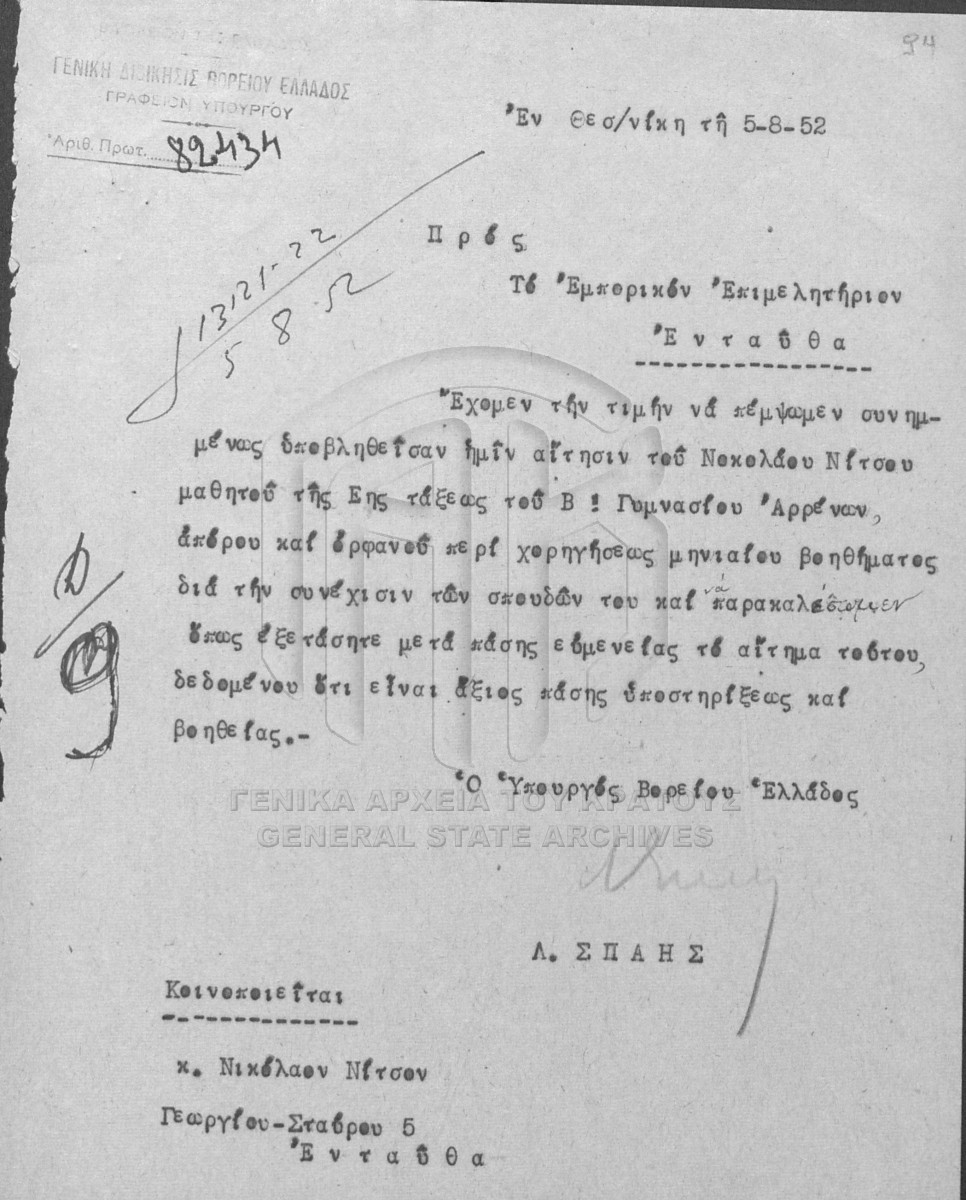 94
ΓΕΝΙΚΗ ΔΙΟΙΚΗΣΙΣ ΒΟΡΕΙΟΥ ΕΛΛΑΔΟΣ
ΓΡΑΦΕΙΟΝ ΥΠΟΥΡΓΟΥ
Ἀριθ. Πρωτ. 82434
Ἐν Θεσ/νίκη τῆ 5-8-52
13121-22
5 8 52
Πρός
Τό Ἐμπορικόν Ἐπιμελητήριον
Ἐνταῦθα
Ἔχομεν τήν τιμήν νά πέμψωμεν συνημ-
μένως ὑποβληθεῖσαν ἡμῖν αἴτησιν τοῦ Νοκολάου Νίτσου
μαθητοῦ τῆς Εης τάξεως τοῦ Β ! Γυμνασίου Ἀρρένων,
ἀπόρου καί ὀρφανοῦ περί χορηγήσεως μηνιαίου βοηθήματος
διά τήν συνέχισιν τῶν σπουδῶν του καί νά παρακαλέσωμεν
ὅπως ἐξετάσητε μετά πάσης εὐμενείας τό αἴτημα τοῦτου,
δεδομένου ὅτι εἶναι ἄξιος πάσης ὑποστηρίξεως καί
βοηθείας.-
Ὁ Ὑπουργός Βορείου Ἑλλάδος
ΓΕΝΙΚΑ ΑΡΧΕΙΑ ΤΟΥ ΚΡΑΤΟΥΣ
GENERAL STATE ARCHIVES
Λ. ΣΠΑΗΣ
Κοινοποιεῖται
κ. Νικόλαον Νίτσον
Γεωργίου-Σταύρου 5
Ἐνταῦθα